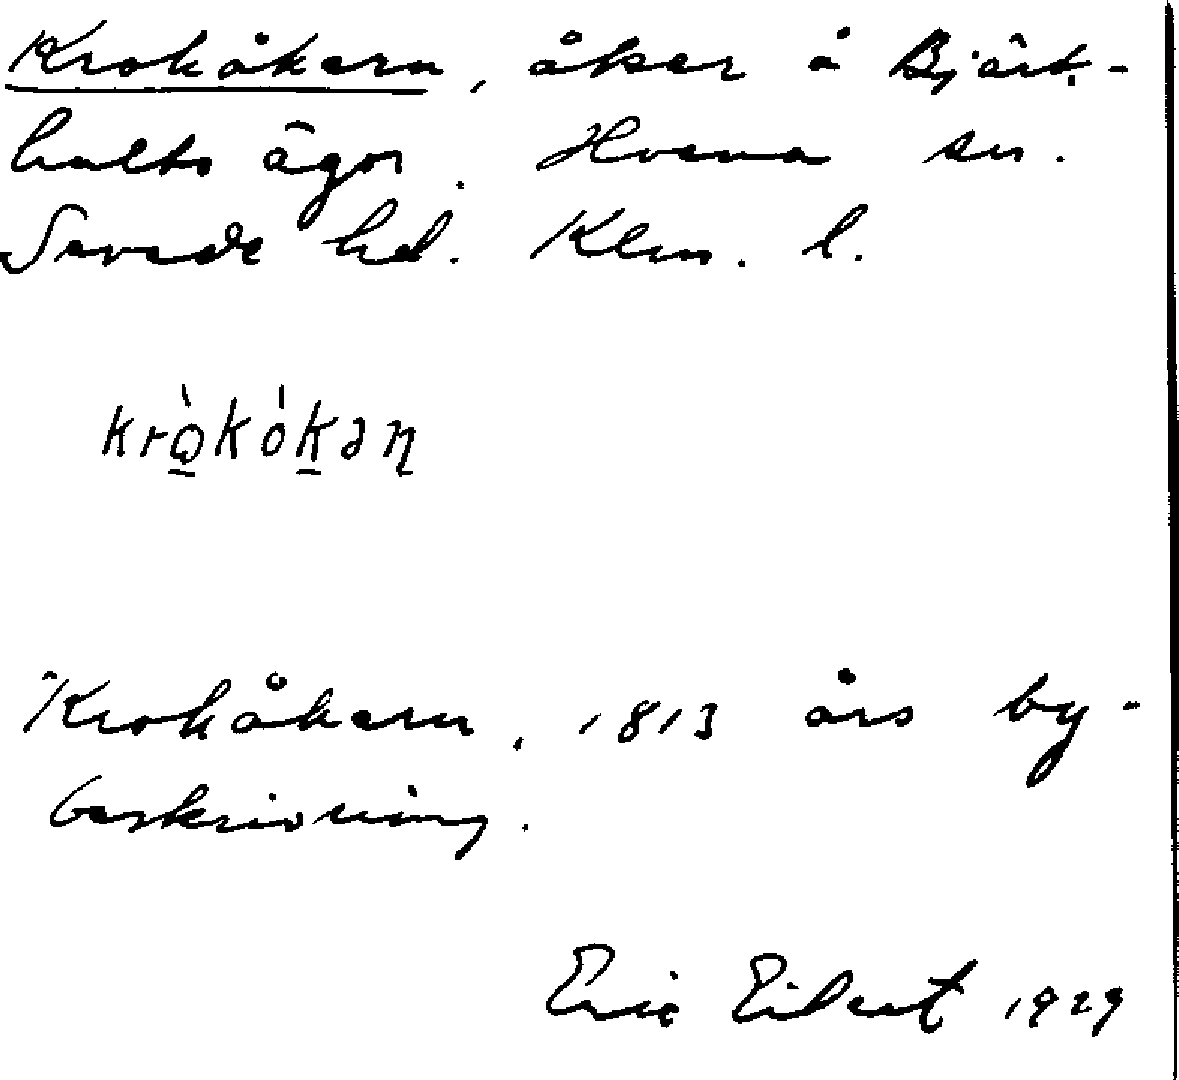 Krokåkern, åker å Björk-
hults ägor. Hvena sn.
Sevede hd. Klm. l.
krò̱kóḵəṉ
Krokåkern, 1813 års by-
beskrivning.
Eric Elbert 1929